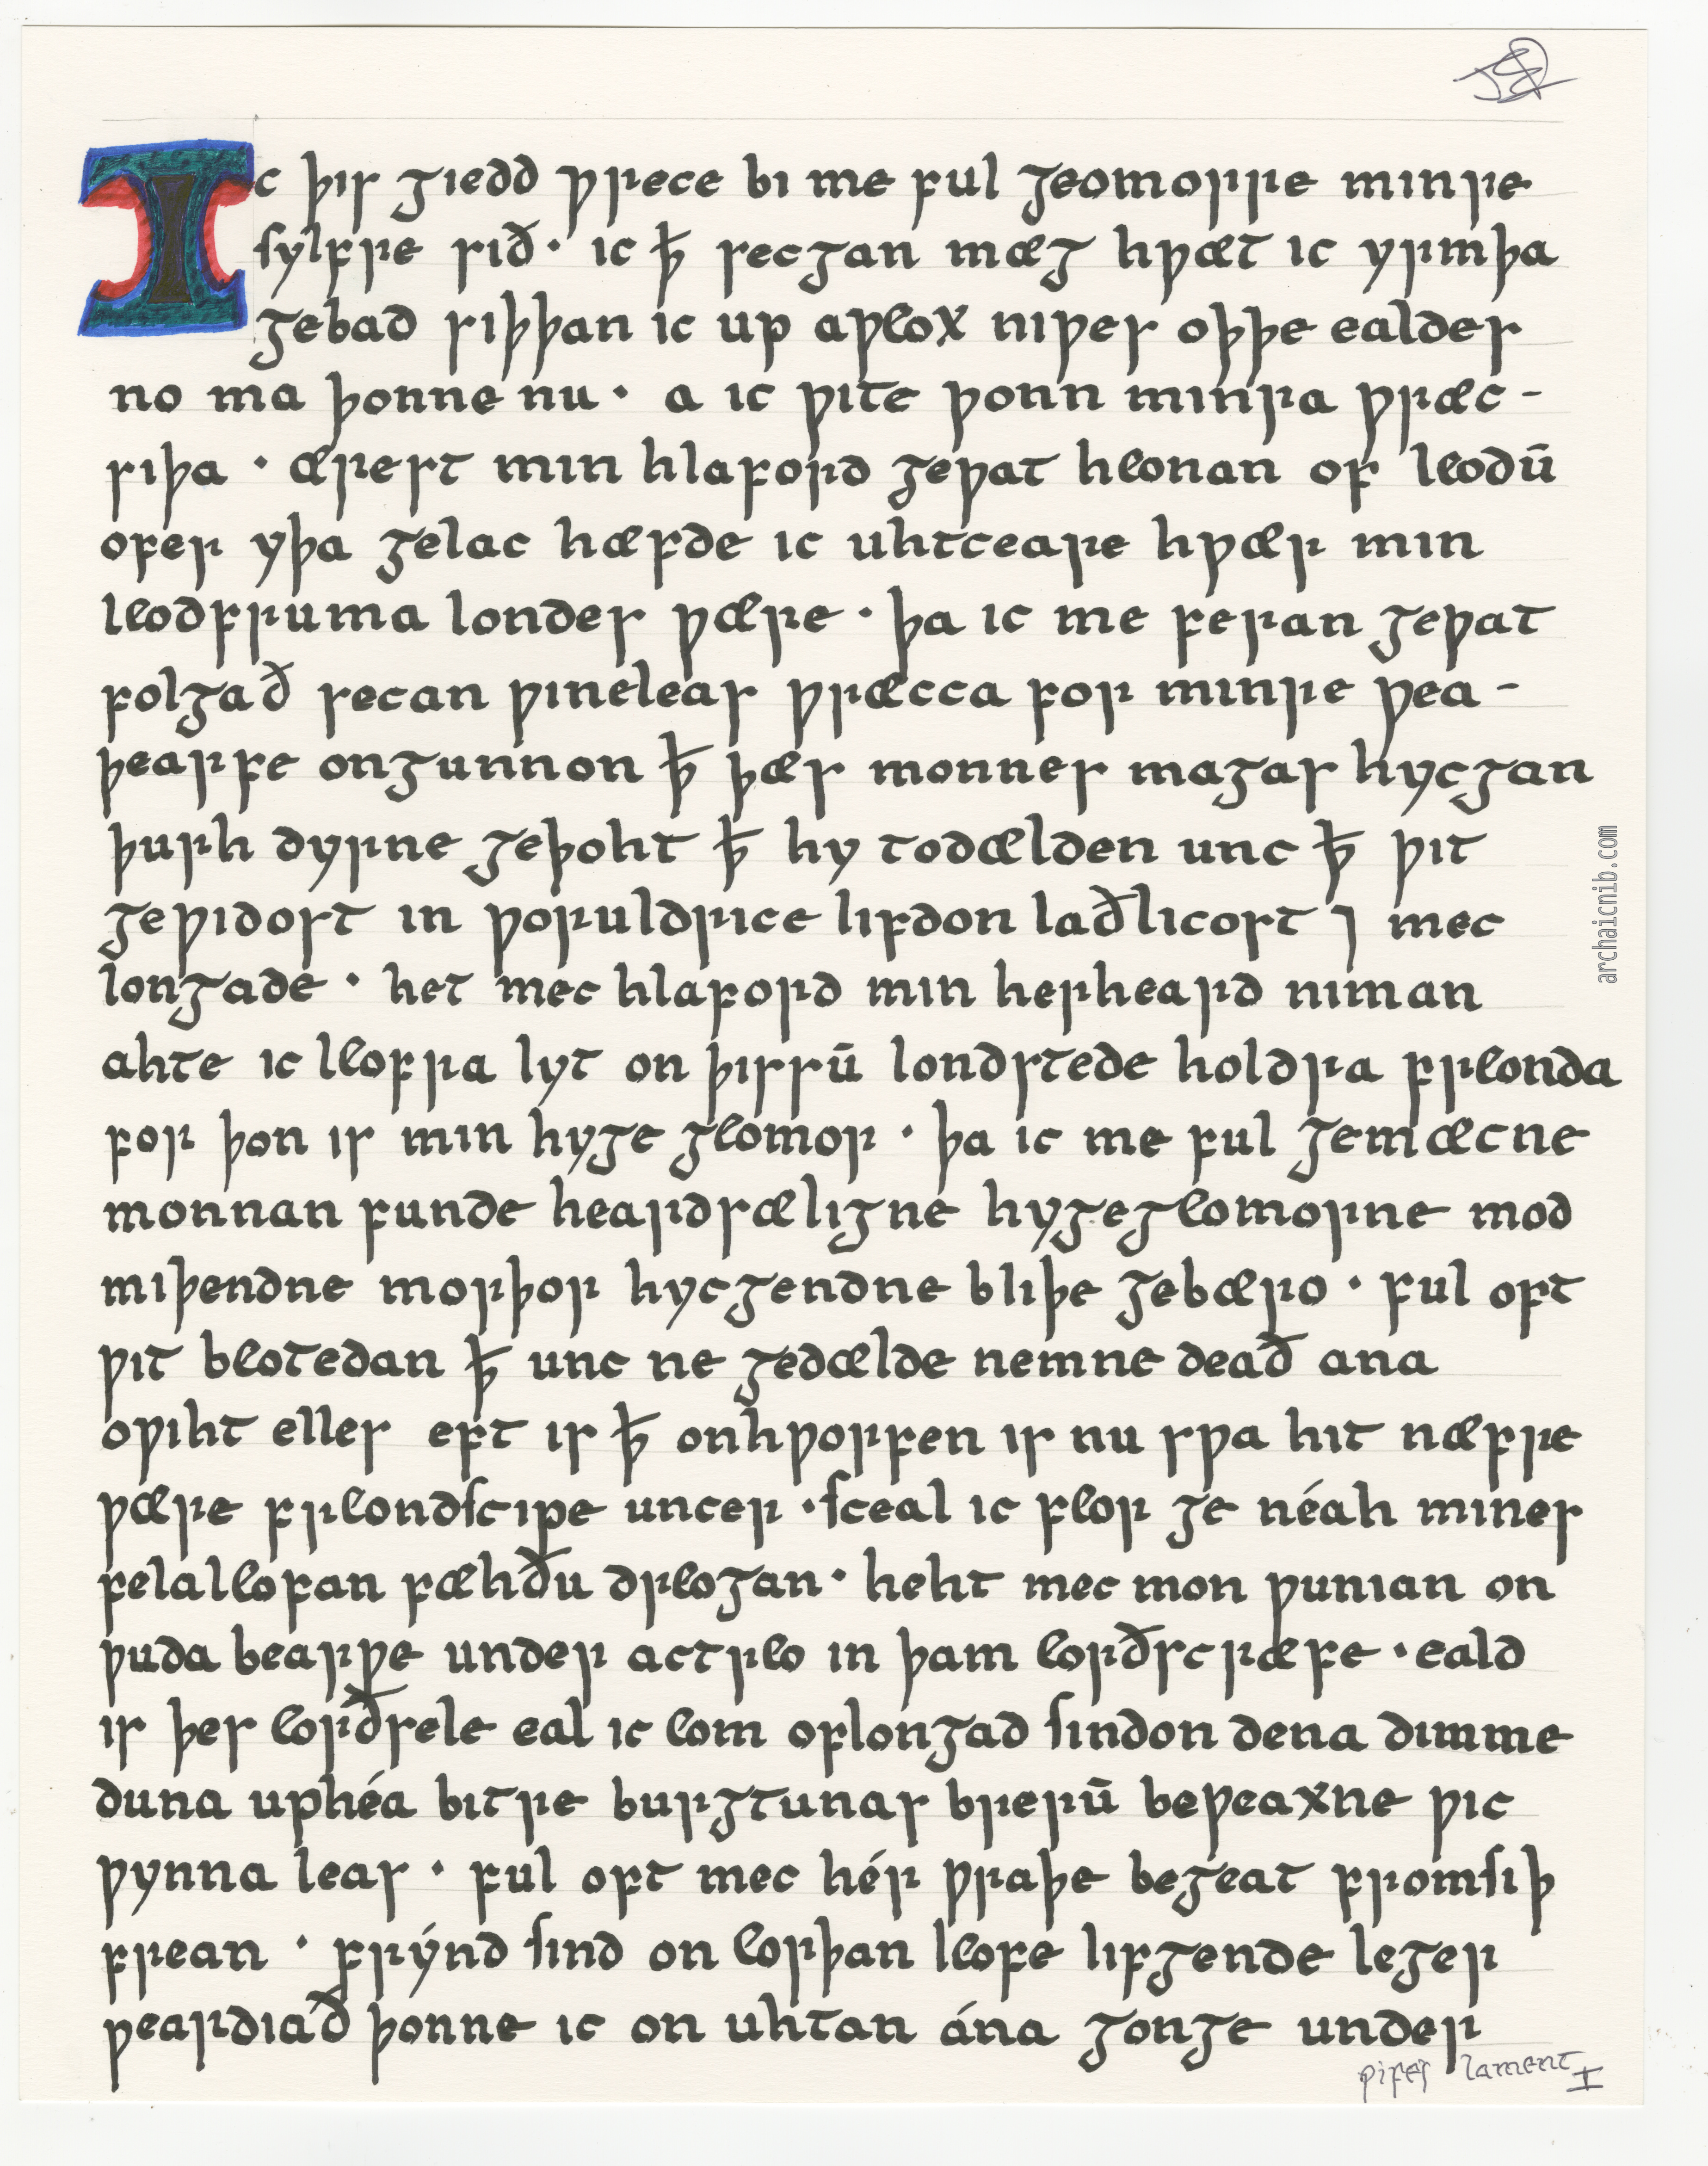 Ic þis giedd ƿrece bi me ful geomorre minre
sylfre sið · ic ꝥ secgan mæg hƿæt ic yrmþa
gebad siþþan ic up aƿeox niƿes oþþe ealdes
no ma þonne nu · a ic ƿite ƿonn minra ƿræc-
siþa · ærest min hlaford geƿat heonan of leodū
ofer yþa gelac hæfde ic uhtceare hƿær min
leodfruma londes ƿære · þa ic me feran geƿat
folgað secan ƿineleas ƿræcca for minre ƿea-
þearfe ongunnon ꝥ þæs monnes magas hycgan
þurh dyrne geþoht ꝥ hy todælden unc ꝥ ƿit
geƿidost in ƿoruldrice lifdon laðlicost ⁊ mec
longade · het mec hlaford min herheard niman
ahte ic leofra lyt on þissū londstede holdra freonda
for þon is min hyge geomor · þa ic me ful gemæcne
monnan funde heardsæligne hygegeomorne mod
miþendne morþor hycgendne bliþe gebæro · ful oft
ƿit beotedan ꝥ unc ne gedælde nemne deað ana
oƿiht elles eft is ꝥ onhƿorfen is nu sƿa hit næfre
ƿære freondscipe uncer · sceal ic feor ge néah mines
felaleofan fæhðu dreogan · heht mec mon ƿunian on
ƿuda bearƿe under actreo in þam eorðscræfe · eald
is þes eorðsele eal ic eom oflongad sindon dena dimme
duna uphéa bitre burgtunas brerū beƿeaxne ƿic
ƿynna leas · ful oft mec hér ƿraþe begeat fromsiþ
frean · frýnd sind on eorþan leofe lifgende leger
ƿeardiað þonne ic on uhtan ána gonge under
ƿifes lament I
archaicnib.com